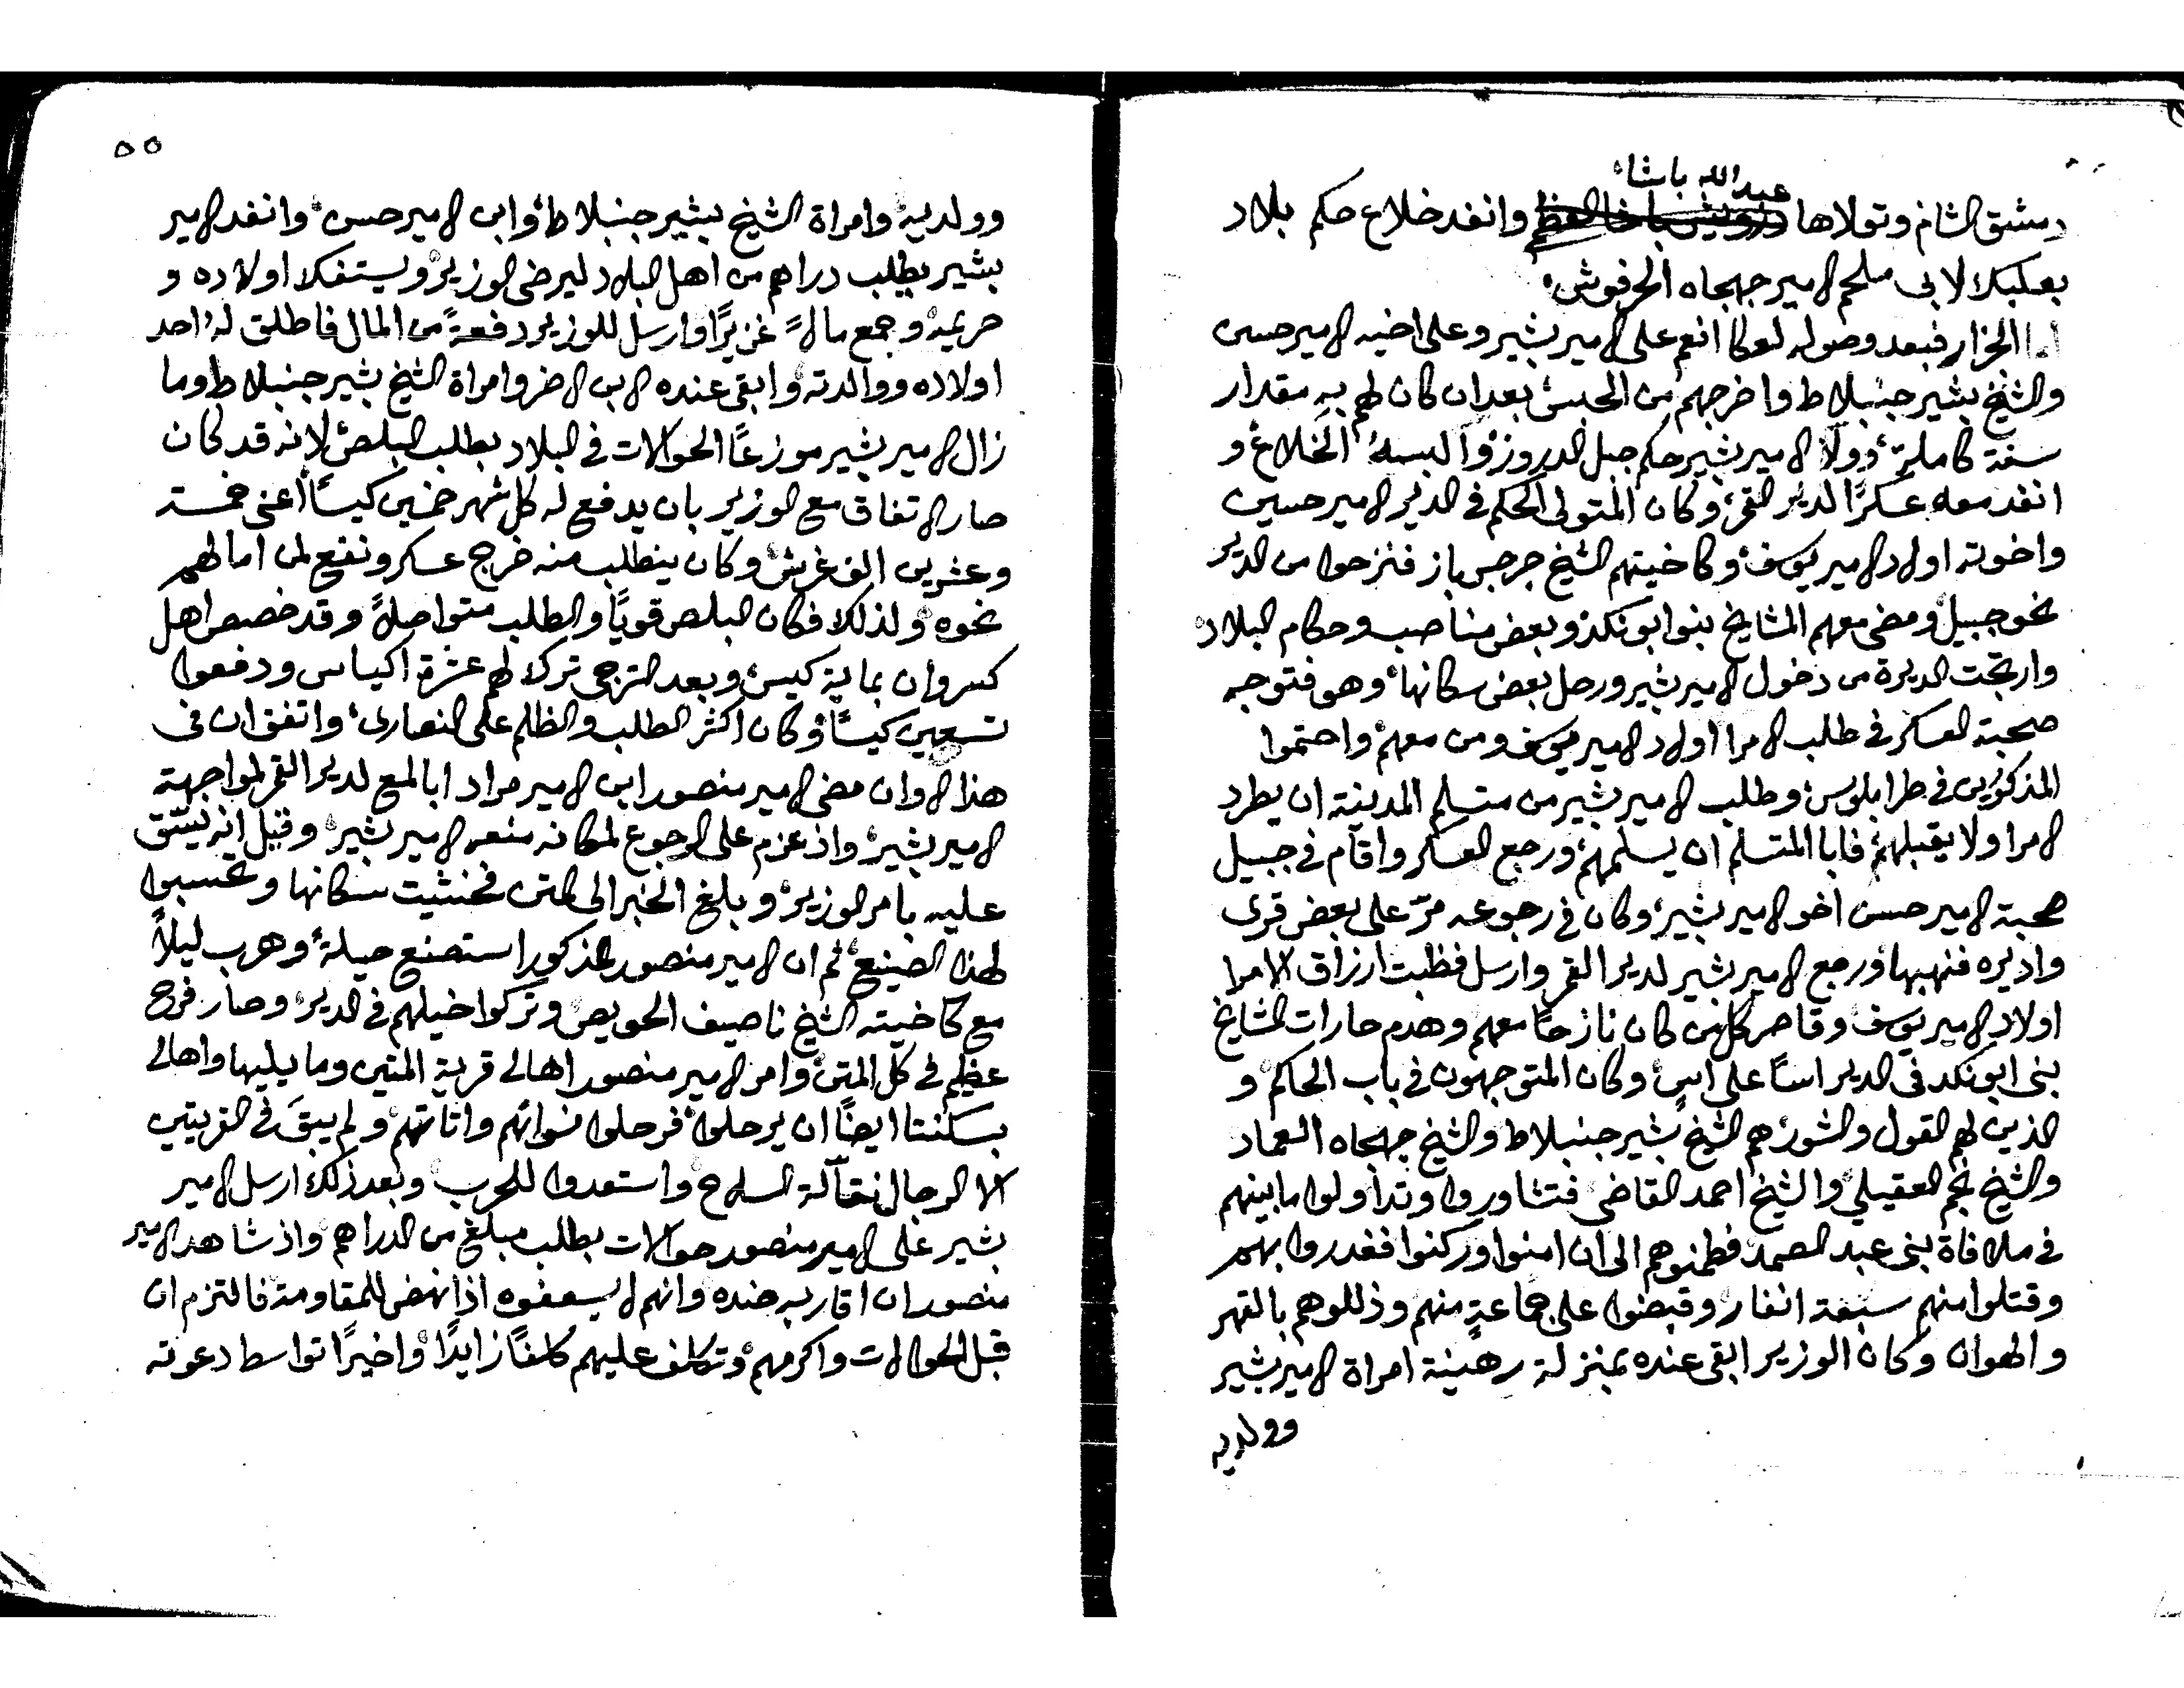 عبد الله باشا
دمشق الشام وتولاها وانفد خلاع حكم بلاد
بعلبك لابي ملحم الامير جهجاه الحرفوش
اما الجزار فبعد وصوله لعكا انعم على الامير بشير وعلى اخيه الامير حسن
والشيخ بشير جنبلاط واخرجهم من الحبس بعد ان كان لهم به مقدار
سنة كاملة وولا الامير بشير حكم جبل الدروز والبسه الخلاع و
انفد معه عسكرًا لدير القمر وكان المتولي الحكم في الدير الامير حسين
واخوته اولاد الامير يوسف وكاخيتهم الشيخ جرجس باز فنزحوا من الدير
نحو جبيل ومضى معهم المشايخ بنوا بو نكد وبعض مناصب وحكام البلاد
وارتجت الديرة من دخول الامير بشير ورحل بعض سكانها وهو فتوجه
صحبة العسكر في طلب الامرا اولاد الامير يوسف ومن معهم واحتموا
المذكورين في طرابلوس وطلب الامير بشير من متسلم المدينة ان يطرد
الامرا ولا يقبلهم فابا المتسلم ان يسلمهم ورجع العسكر واقام في جبيل
صحبة الامير حسن اخو الامير بشير وكان في رجوعه مرّ على بعض قرى
واديره فنهبها ورجع الامير بشير لدير القمر وارسل فظبت ارزاق الامرا
اولاد الامير يوسف وقاصر كلمن كان نازحًا معهم وهدم حارات المشايخ
بني ابو نكد في الدير اساً على اسٍ وكان المتوجهون في باب الحاكم و
الذين لهم القول والشور هم الشيخ بشير جنبلاط والشيخ جهجاه العماد
والشيخ نجم العقيلي والشيخ احمد القاضي فتشاوروا وتداولوا ما بينهم
في ملاقاة بني عبد الصمد فطمنوهم الى ان امنوا وركنوا فغدروا بهم
وقتلوا منهم سبعة انفار وقبضوا على جماعةٍ منهم وذللوهم بالقهر
والهوان وكان الوزير ابقى عنده بمنزلة رهينة امراة الامير بشير
وولديه
٥٥
وولديه وامراة الشيخ بشير جنبلاط وابن الامير حسن وانفد الامير
بشير يطلب دراهم من اهل البلاد ليرضي الوزير ويستفك اولاده و
حريمه وجمع مالاً غزيرًا وارسل للوزير دفعةً من المال فاطلق له احد
اولاده ووالدته وابقى عنده الابن الاخر وامراة الشيخ بشير جنبلاط وما
زال الامير بشير موزعًا الحوالات في البلاد بطلب البلص لانه قد كان
صار الاتفاق مع الوزير بان يدفع له كل شهر خمسين كيسًا اعني خمسة
وعشرين الف غرش وكان ينطلب منه خرج عسكر ونفع لمن امالهم
نحوه ولذلك فكان البلص قويًا والطلب متواصلاً وقد خصص اهل
كسروان بماية كيس وبعد الترجي ترك لهم عشرة اكياس ودفعوا
تسعين كيسًا وكان اكثر الطلب والظلم على النصارى واتفق ان في
هذا الاوان مضى الامير منصور ابن الامير مراد ابا للمع لدير القمر لمواجهة
الامير بشير واذ عزم على الرجوع لمكانه منعه الامير بشير وقيل انه نسّق
عليه بامر الوزير وبلغ الخبر الى المتن فخشيت سكانها وتحسبوا
لهذا الصنيع ثم ان الامير منصور المذكور استصنع حيلة وهرب ليلاً
مع كاخيته الشيخ ناصيف الحويص وتركوا خيلهم في الدير وصار فرح
عظيم في كل المتن وامر الامير منصور اهالي قرية المتين وما يليها واهالي
بسكنتا ايضًا ان يرحلوا فرحلوا نسوانهم واثاثهم ولم يبقَ في القريتين
الا الرجال نقالة السلاح واستعدوا للحرب وبعد ذلك ارسل الامير
بشير على الامير منصور حوالات بطلب مبلغ من الدراهم واذ شاهد الامير
منصور ان اقاربه ضده وانهم لا يسعفوه اذا نهض للمقاومة فالتزم ان
قبل الحوالات واكرمهم وتكلف عليهم كلفًا زايدًا واخيرًا تواسط دعوته